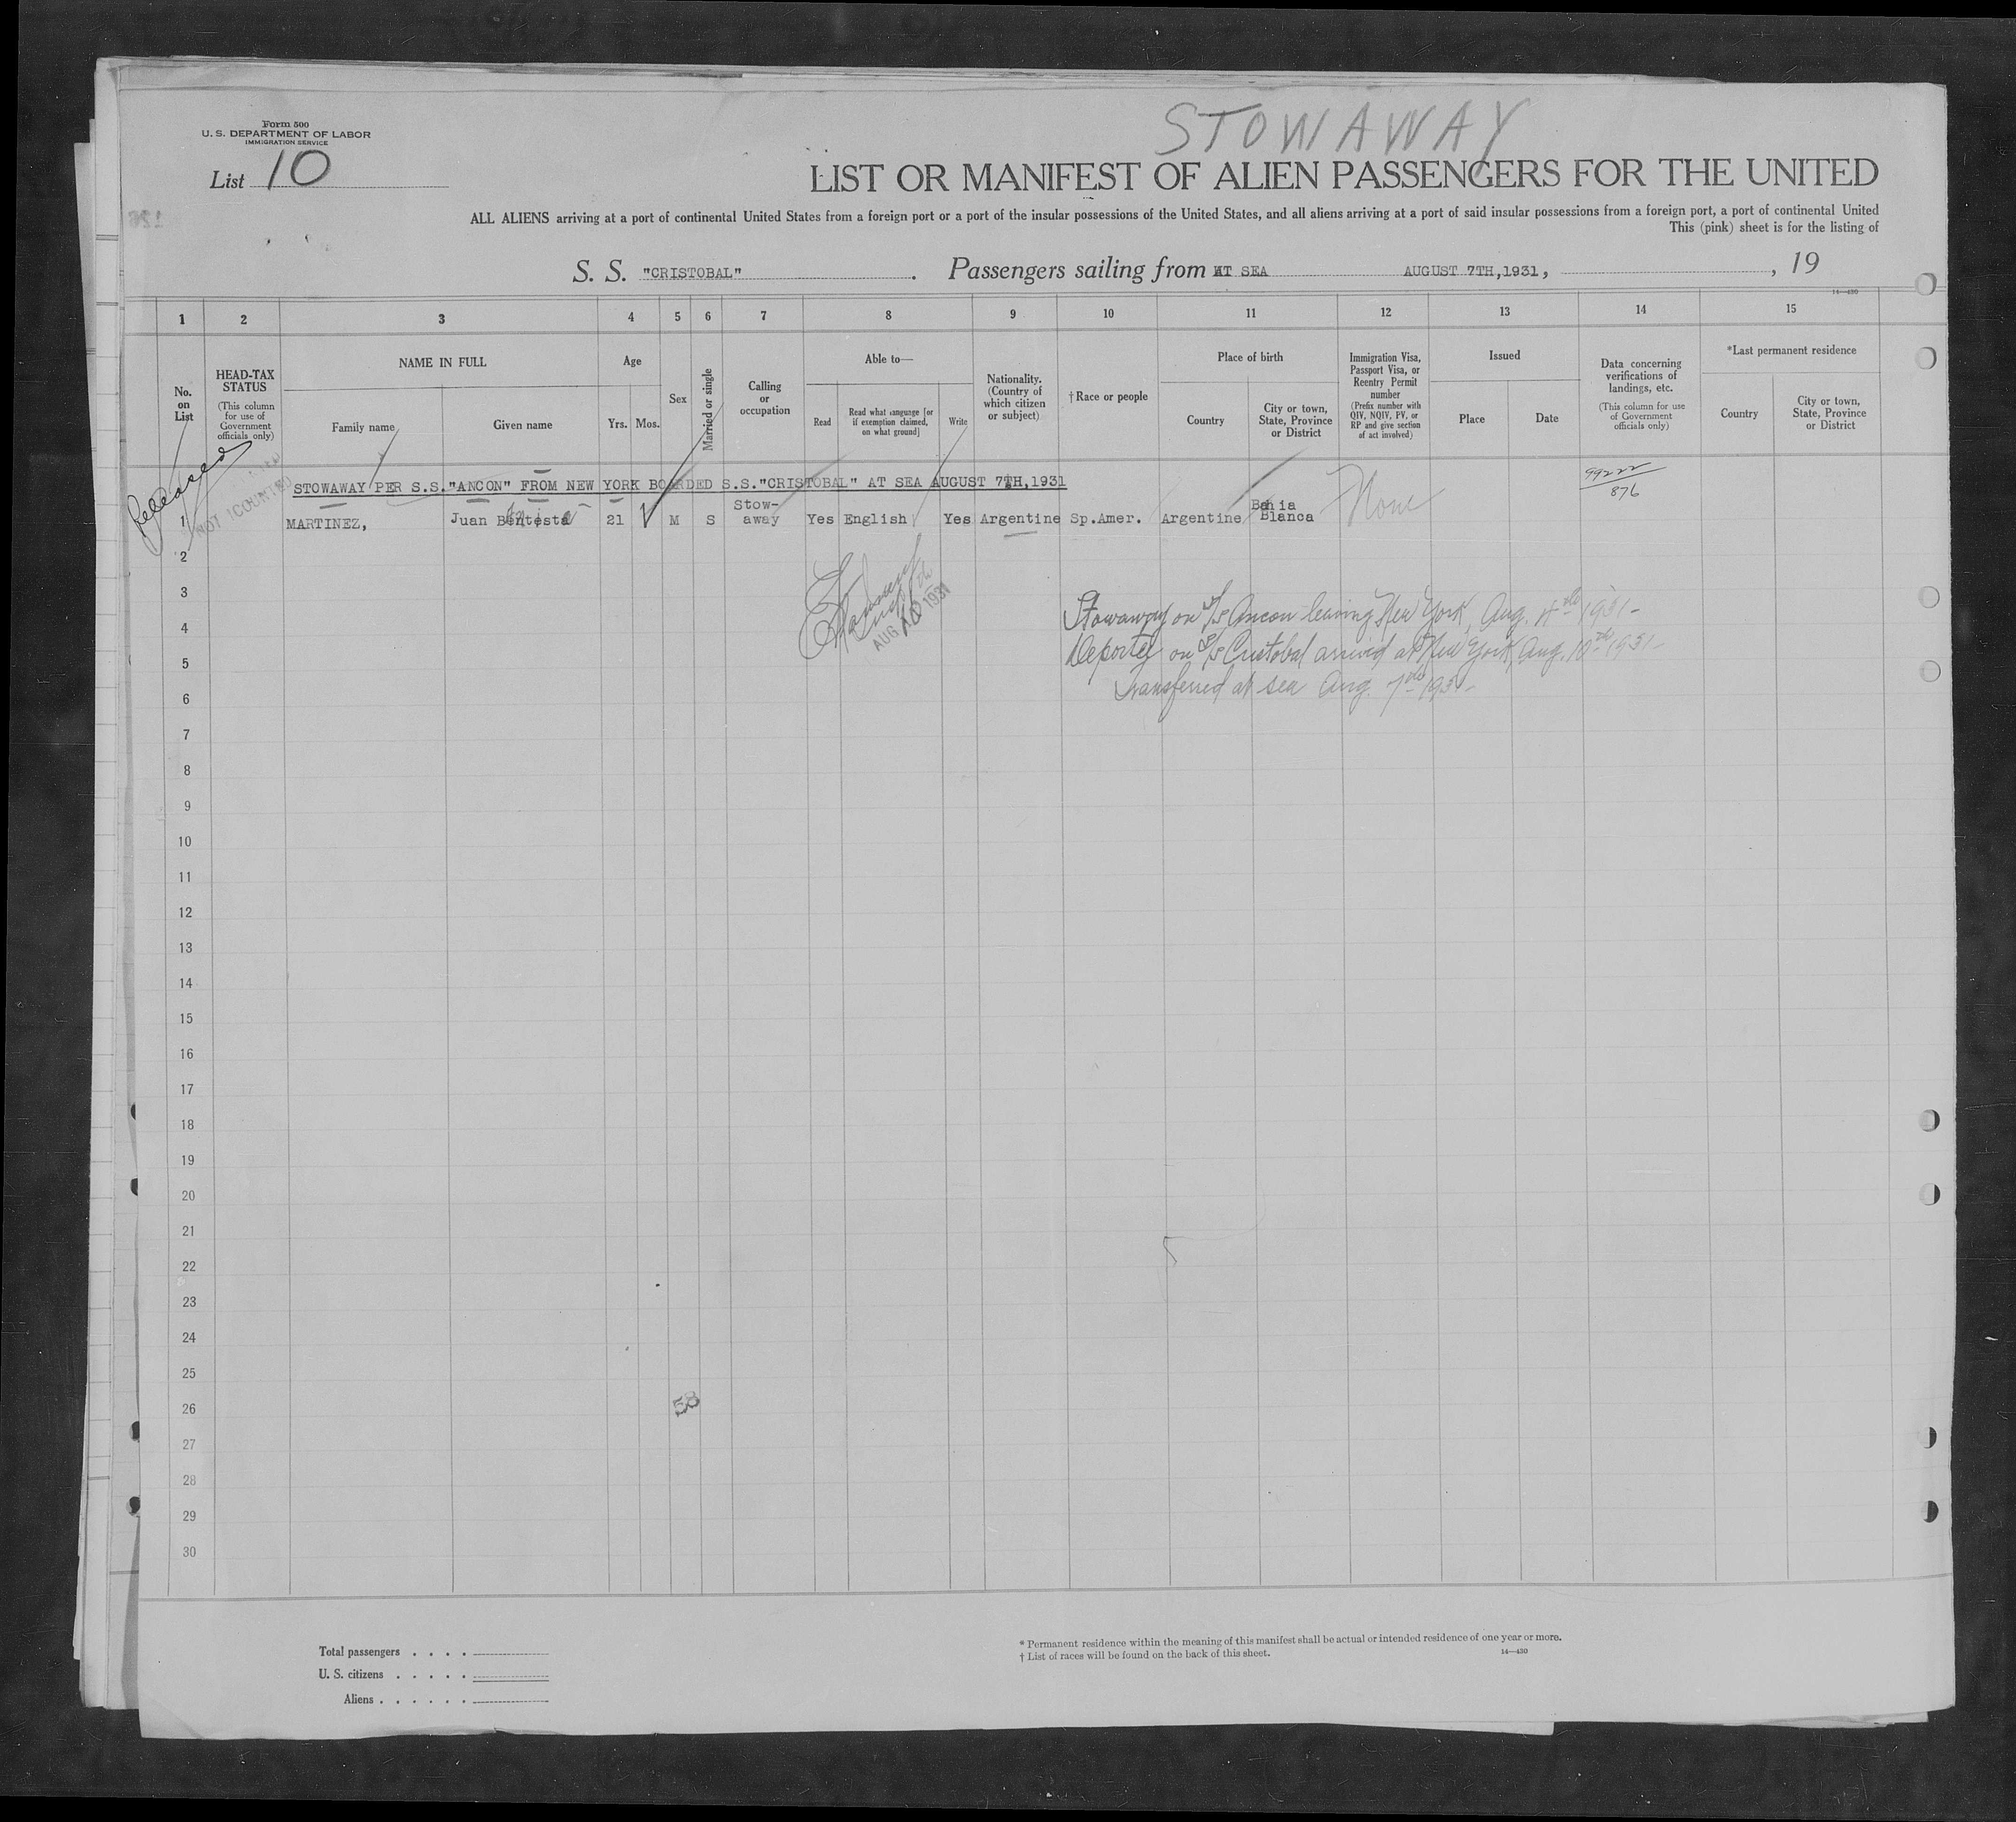 STOWAWAY
Form 500
U. S. DEPARTMENT OF LABOR
IMMIGRATION SERVICE
List 10
LIST OR MANIFEST OF ALIEN PASSENGERS FOR THE UNITED
ALL ALIENS arriving at a port of continental United States from a foreign port or a port of the insular possessions of the United States, and all aliens arriving at a port of said insular possessions from a foreign port, a port of continental United
This (pink) sheet is for the listing of
S. S. "CRISTOBAL". Passengers sailing from AT SEA AUGUST 7TH,1931, , 19
14—430
1 2 3 4 5 6 7 8 9 10 11 12 13 14 15
No. on List
HEAD-TAX STATUS
(This column for use of Government officials only)
NAME IN FULL
Family name
Given name
Age
Yrs.
Mos.
Sex
Married or single
Calling or occupation
Able to—
Read
Read what language [or if exemption claimed, on what ground]
Write
Nationality. (Country of which citizen or subject)
†Race or people
Place of birth
Country
City or town, State, Province or District
Immigration Visa, Passport Visa, or Reentry Permit number
(Prefix number with QIV, NQIV, PV, or RP and give section of act involved)
Issued
Place
Date
Data concerning verifications of landings, etc.
(This column for use of Government officials only)
*Last permanent residence
Country
City or town, State, Province or District
Released
NOT COUNTED
STOWAWAY PER S.S."ANCON" FROM NEW YORK BOARDED S.S."CRISTOBAL" AT SEA AUGUST 7TH,1931
99222
876
1 MARTINEZ, Juan 21 M S Stow-away Yes English Yes Argentine Sp.Amer. Argentine Bahia Blanca None
2
3
4
5
6
AUG 10 1931
Stowaway on S/S Ancon leaving New York, Aug. 4th 1931-
Deported on S/S Cristobal arrived at New York Aug. 10th 1931-
transferred at sea Aug. 7th 1931-
7
8
9
10
11
12
13
14
15
16
17
18
19
20
21
22
23
24
25
26
58
27
28
29
30
Total passengers . . . .
U. S. citizens . . . . .
Aliens . . . . . .
* Permanent residence within the meaning of this manifest shall be actual or intended residence of one year or more.
† List of races will be found on the back of this sheet.
14—430